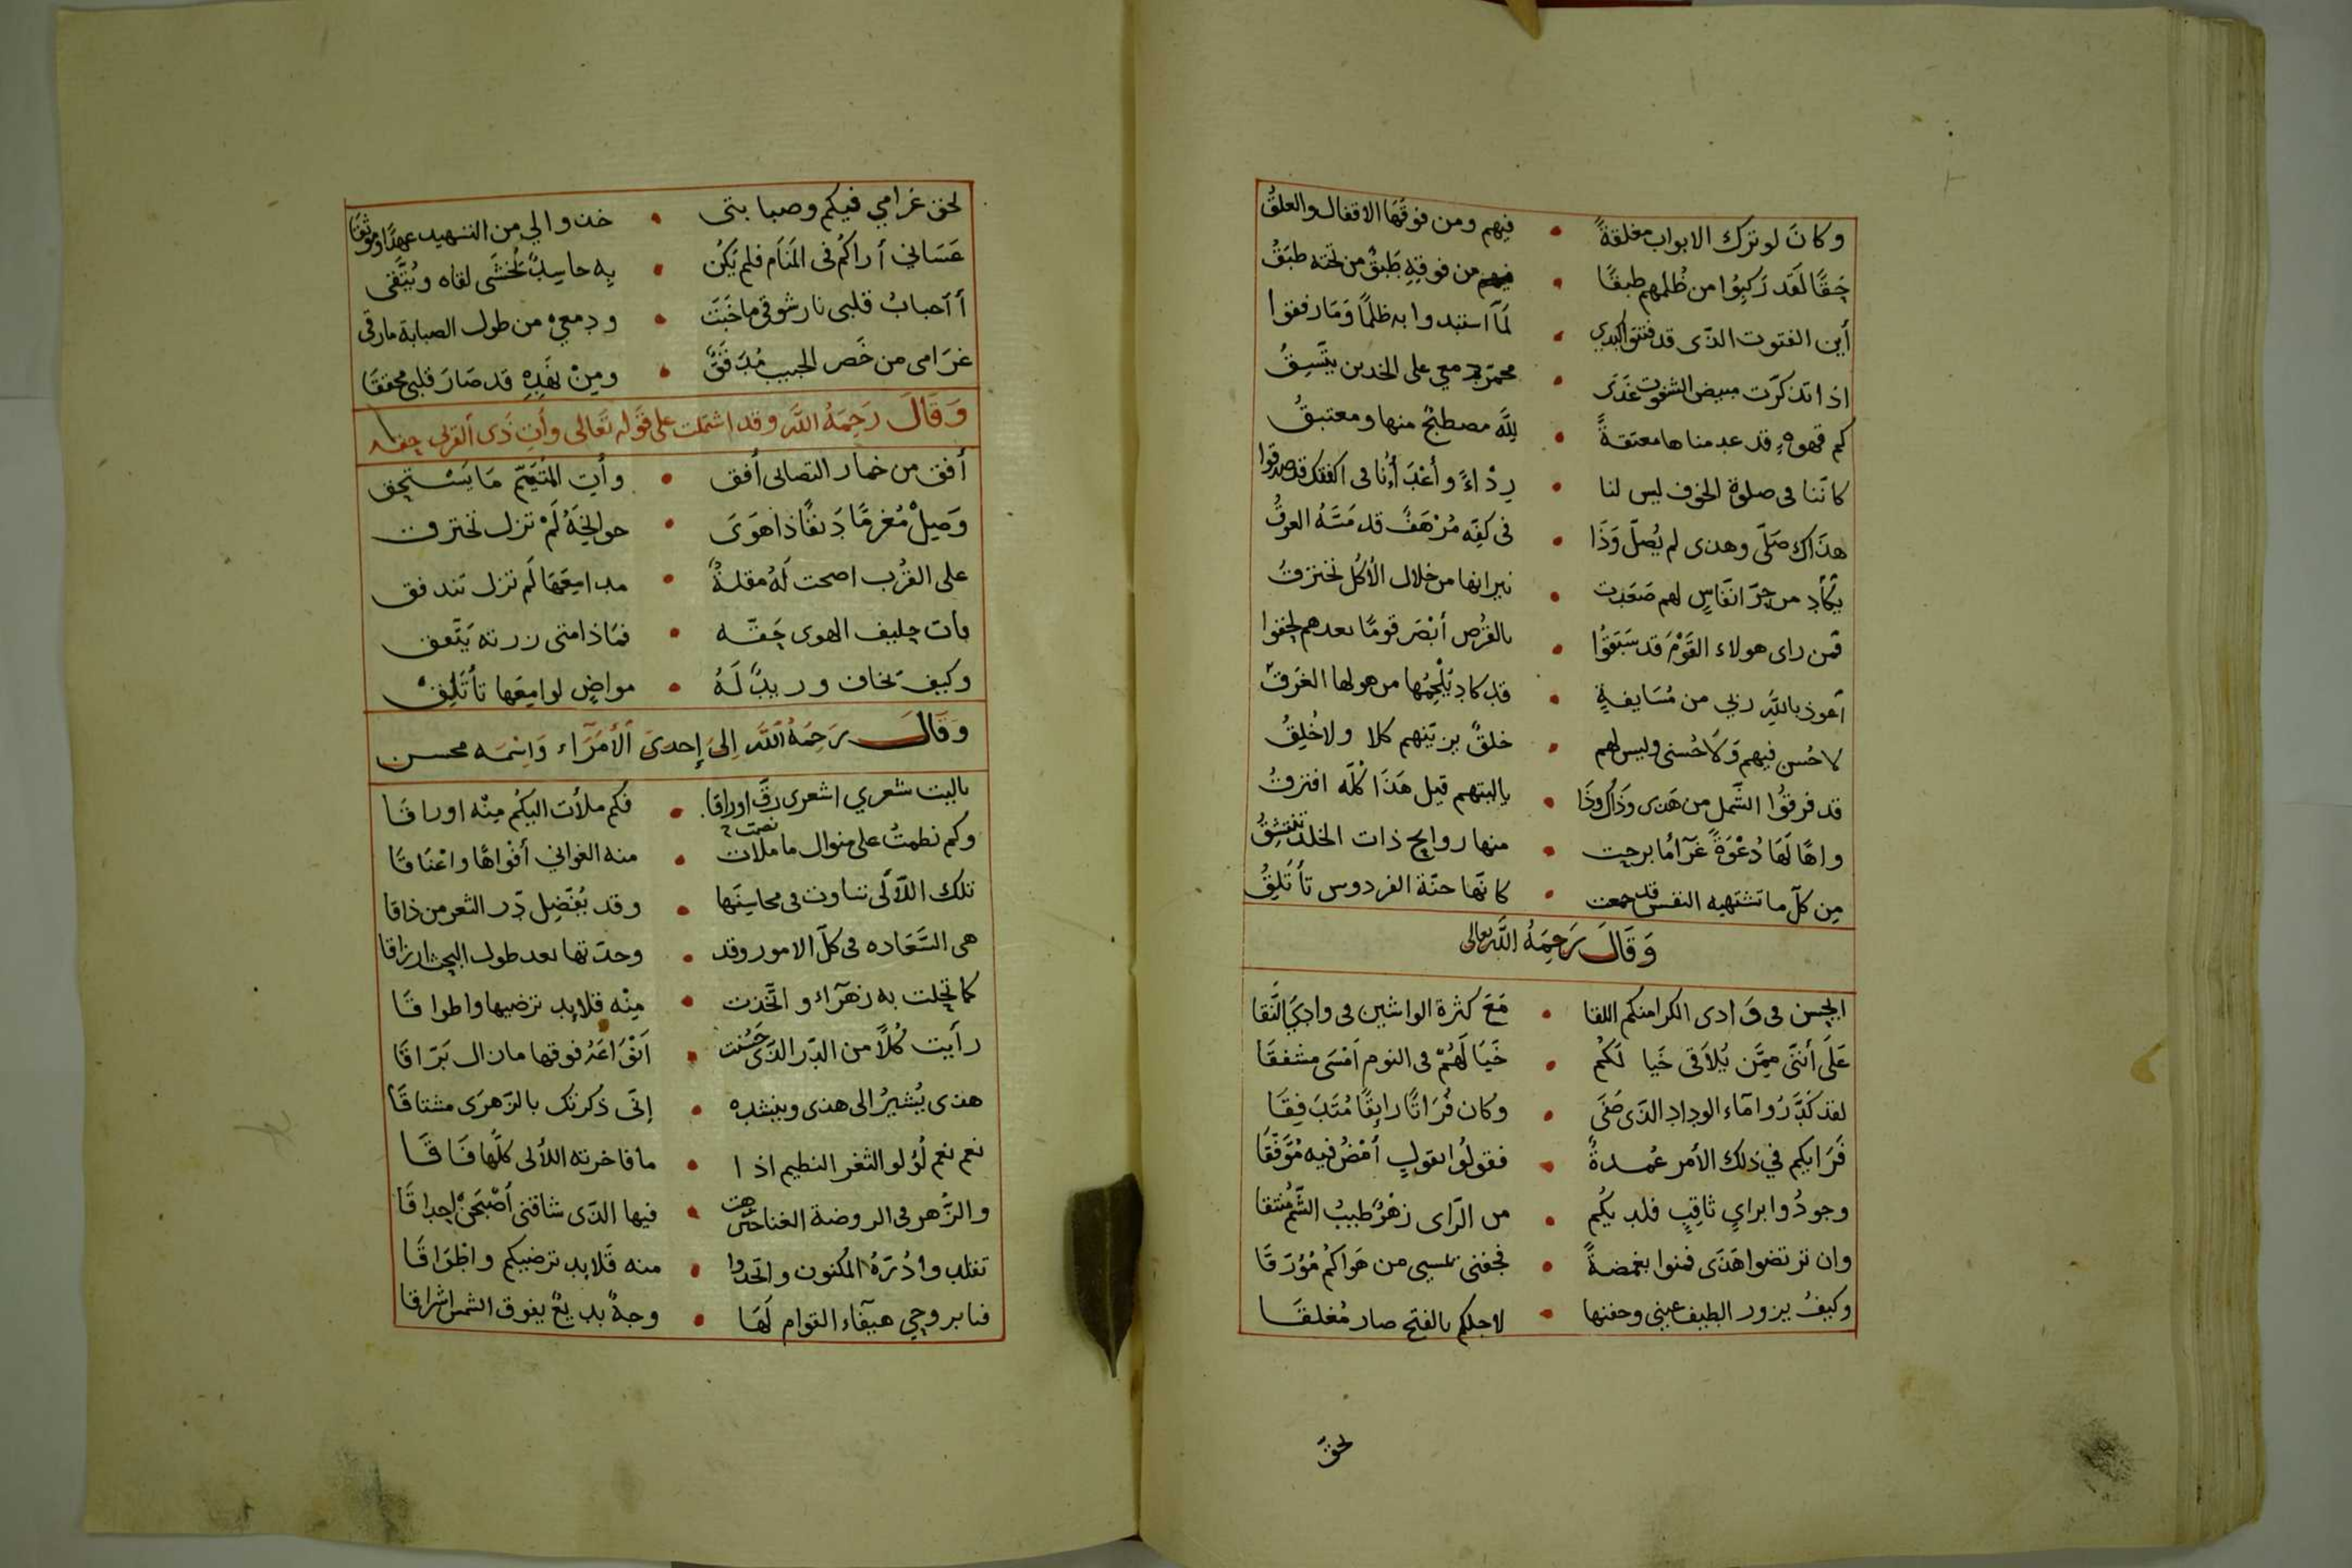 وكانَ لو ترك الابواب مغلقةً • فيهم ومن فوقها الاقفال والعلقُ
حقًّا لقد ركبوا من ظلمهم طبقًا • من فوقهِ طبقٌ من تحته طبقُ
أين الفتوت الذى قد فتتوا كبدي • لمّا استبدوا به ظلمًا وما رفقوا
اذا تذكرّت مبيض الفتوت غدَى • محمرّ دمعي على الخدين يتّسِقُ
كم قهوةٍ قد عدمناها معتقةً • للَّه مصطبحٌ منها ومغتبقُ
كانّنا فى صلوة الخوف ليس لنا • رِدْاءً وأعْدَاؤنا فى
هذاك صَلّى وهذى لم يُصلّ وَذَا • فى كفّه مُرْهَفٌ قد مَسَّهُ العرقُ
يكاد من حرّ انفاسٍ لهم صَعَدت • نيرانها من خلال الأكل تحترقُ
فمن راى هولاء القَوْمُ قد سَبَقوُا • بالقُرْص أبْصَر قومًا بعدهم لحقوا
أعوذ باللهِ ربي من مُسَايفةٍ • قد كاد يُلْجِمُها من هولها الغَرقُ
لا حُسن فيهم وَلا حُسنى وليس لهم • خلقٌ يزيّنهم كلا ولا خُلِقُ
قد فرقوُا الشّمل من هَذى وَذاك وذَا • ياليتهم قبل هَذَا كُلّه افترقُ
واهًا لَهَا دُعْوَةً غرّآءُ ما برحت • منها روايح ذات الخلد تنتشقُ
مِن كلّ ما تشتهيه النفس قد جمعت • كانّها جنّة الفردوس تأتلِقُ
وَقَالَ رَحِمَهُ اللَّه تعالى
ايحسن فى وَادى الكرا منكم اللقا • مَعَ كثرة الواشين فى وادىَ النَّقا
عَلَى أننَّى ممَّن يُلاَقى خَيا لَكُم • خَيَا لَهُمّ فى النوم أمْسَى مشفقَا
لقد كَدَّرُوا مآء الوداد الذى صَفَى • وكان فُرَاتًا رايِقًا مُتَدَفِقَا
فَرَايكم في ذلك الأمر عُمدةً • فقولوُا بقولٍ أمْضُ فيه مُوَفَّقَا
وجودُوا برايٍ ثاقِبٍ فلديكُم • من الرّاى زهْرٌ طيبُ الشَّمِّ مُنتقا
وان ترتضوا هَذَى فمنوا بغمضةً • فجفنى تمسى من هَوَاكُمْ مُؤرَقَا
وكيفَ يزور الطيف عينى وجفنها • لاجلكم بالفتح صار مُغلقَا
لحقّ
لحق غرامي فيكم وصبا بتى • خذوا لي من التسهيد عهدًا وموثقَا
عَسَانى أراكُم فى المَنَام فلم يَكُن • بِه حاسِدٌ يُخشَى لقاه ويُتَّقى
أ أحبابُ قلبى نار شوقى ما خَبَت • ودمعي من طول الصبابة مارقى
غرَامى من خَصر الحبيب مُدَقَّقٌ • ومِنْ بَعْدِهِ قد صَارَ قلبى محققَا
وَقَالَ رَحِمَهُ اللَّه وقد اشتملت على قَوله تَعَالى وأتِ ذَى القربى حقه
أفق من خمار التصابى أفق • وأتِ المُتَيَّمَ مَا يَسْتَحِق
وَصِلْ مُغرمًا دَنفًا ذَا هَوَى • جوانحَهُ لَمْ تزل تحترق
على القُرْب اصحت لَهُ مقلةٌ • مدامِعَهَا لَم تزل تندفق
فآت حليف الهوى حَقّه • فمَاذا متى زرته يَتَّفق
وكيف تخاف وريبٌ لَهُ • مواضٍ لوامِعَها تأتَلِقْ
وَقَالَ رَحِمَهُ اللَّه إلىَ إحدىَ الأمَرَاء وَاسْمَه محسن
ياليت شعري اشعرى رَقّ اوراقا • فكم ملأت اليكُم مِنْه اوراقَا
وكم نظمتُ على منوال ما ملات • منه الغوانى أفْواهًا واعْنَاقًا
تلك اللآلى تساوت فى محاسِنَها • وقد يُفَضِّل دّر الثغر من ذاقا
هى السَّعَاده فى كلّ الامور وقد • وجدتها بعد طول البحث ارزاقا
كما تجلت به زهرآء واتّخذت • مِنْه قلايد ترضيها واطواقَا
رأيت كُلاً من الدّر الذّى حَسُنت • انوَاعَهُ فوقها مازال بَرّاقَا
هذى يُشيرُ الى هذى وينشده • إنّى ذكرتك بالزّهرَى مشتاقَا
نعم نعم لُؤلو الثغر النظيم اذا • ما فاخرته اللألى كلّها فَاقَا
والزَّهر فى الروضة الغنا حَتى • فيها الذّى شاقنى أصْبَحَنْ احداقَا
تقلدوا دُرّهُ المكنون واتخذوا • منه قَلايد ترضيكم واطْوَاقَا
فنا بروحي هيّفاء القوام لَهَا • وجهٌ بديعٌ يفوق الشمس اشراقا